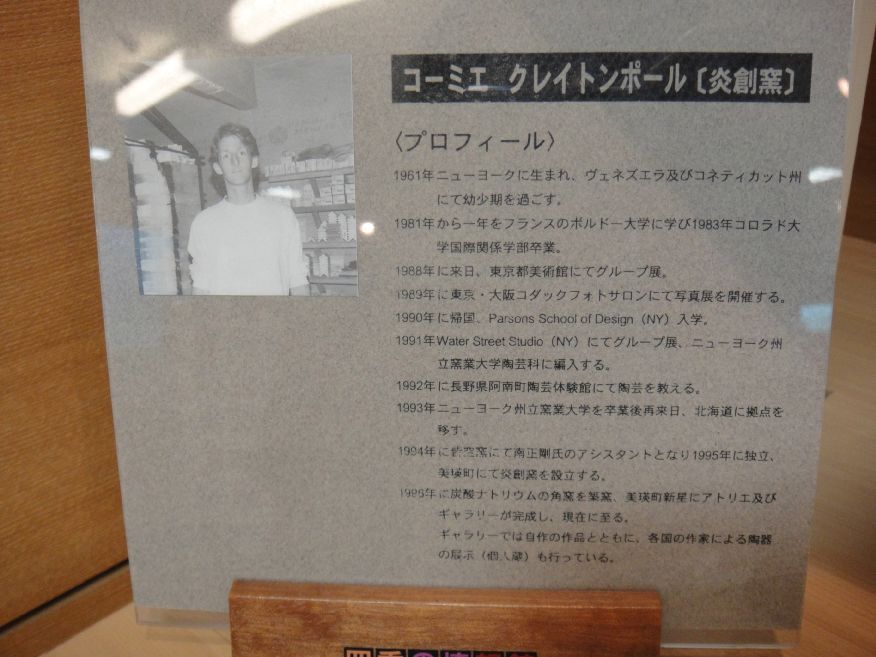 コーミエ クレイトンポール〔炎創窯〕
〈プロフィール〉
1961年ニューヨークに生まれ、ヴェネズエラ及びコネティカット州
にて幼少期を過ごす。
1981年から一年をフランスのボルドー大学に学び1983年コロラド大
学国際関係学部卒業。
1988年に来日、東京都美術館にてグループ展。
1989年に東京・大阪コダックフォトサロンにて写真展を開催する。
1990年に帰国、Parsons School of Design（NY）入学。
1991年Water Street Studio（NY）にてグループ展、ニューヨーク州
立窯業大学陶芸科に編入する。
1992年に長野県阿南町陶芸体験館にて陶芸を教える。
1993年ニューヨーク州立窯業大学を卒業後再来日、北海道に拠点を
移す。
1994年に 空窯にて南正剛氏のアシスタントとなり1995年に独立、
美瑛町にて炎創窯を設立する。
1996年に炭酸ナトリウムの角窯を築窯、美瑛町新星にアトリエ及び
ギャラリーが完成し、現在に至る。
ギャラリーでは自作の作品とともに、各国の作家による陶器
の展示（個人蔵）も行っている。